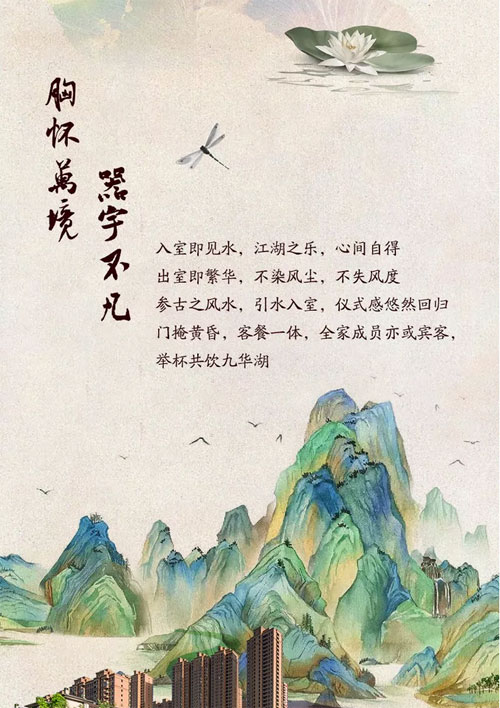 胸怀萬境
器宇不凡
入室即见水，江湖之乐，心间自得
出室即繁华，不染风尘，不失风度
参古之风水，引水入室，仪式感悠然回归
门掩黄昏，客餐一体，全家成员亦或宾客，
举杯共饮九华湖